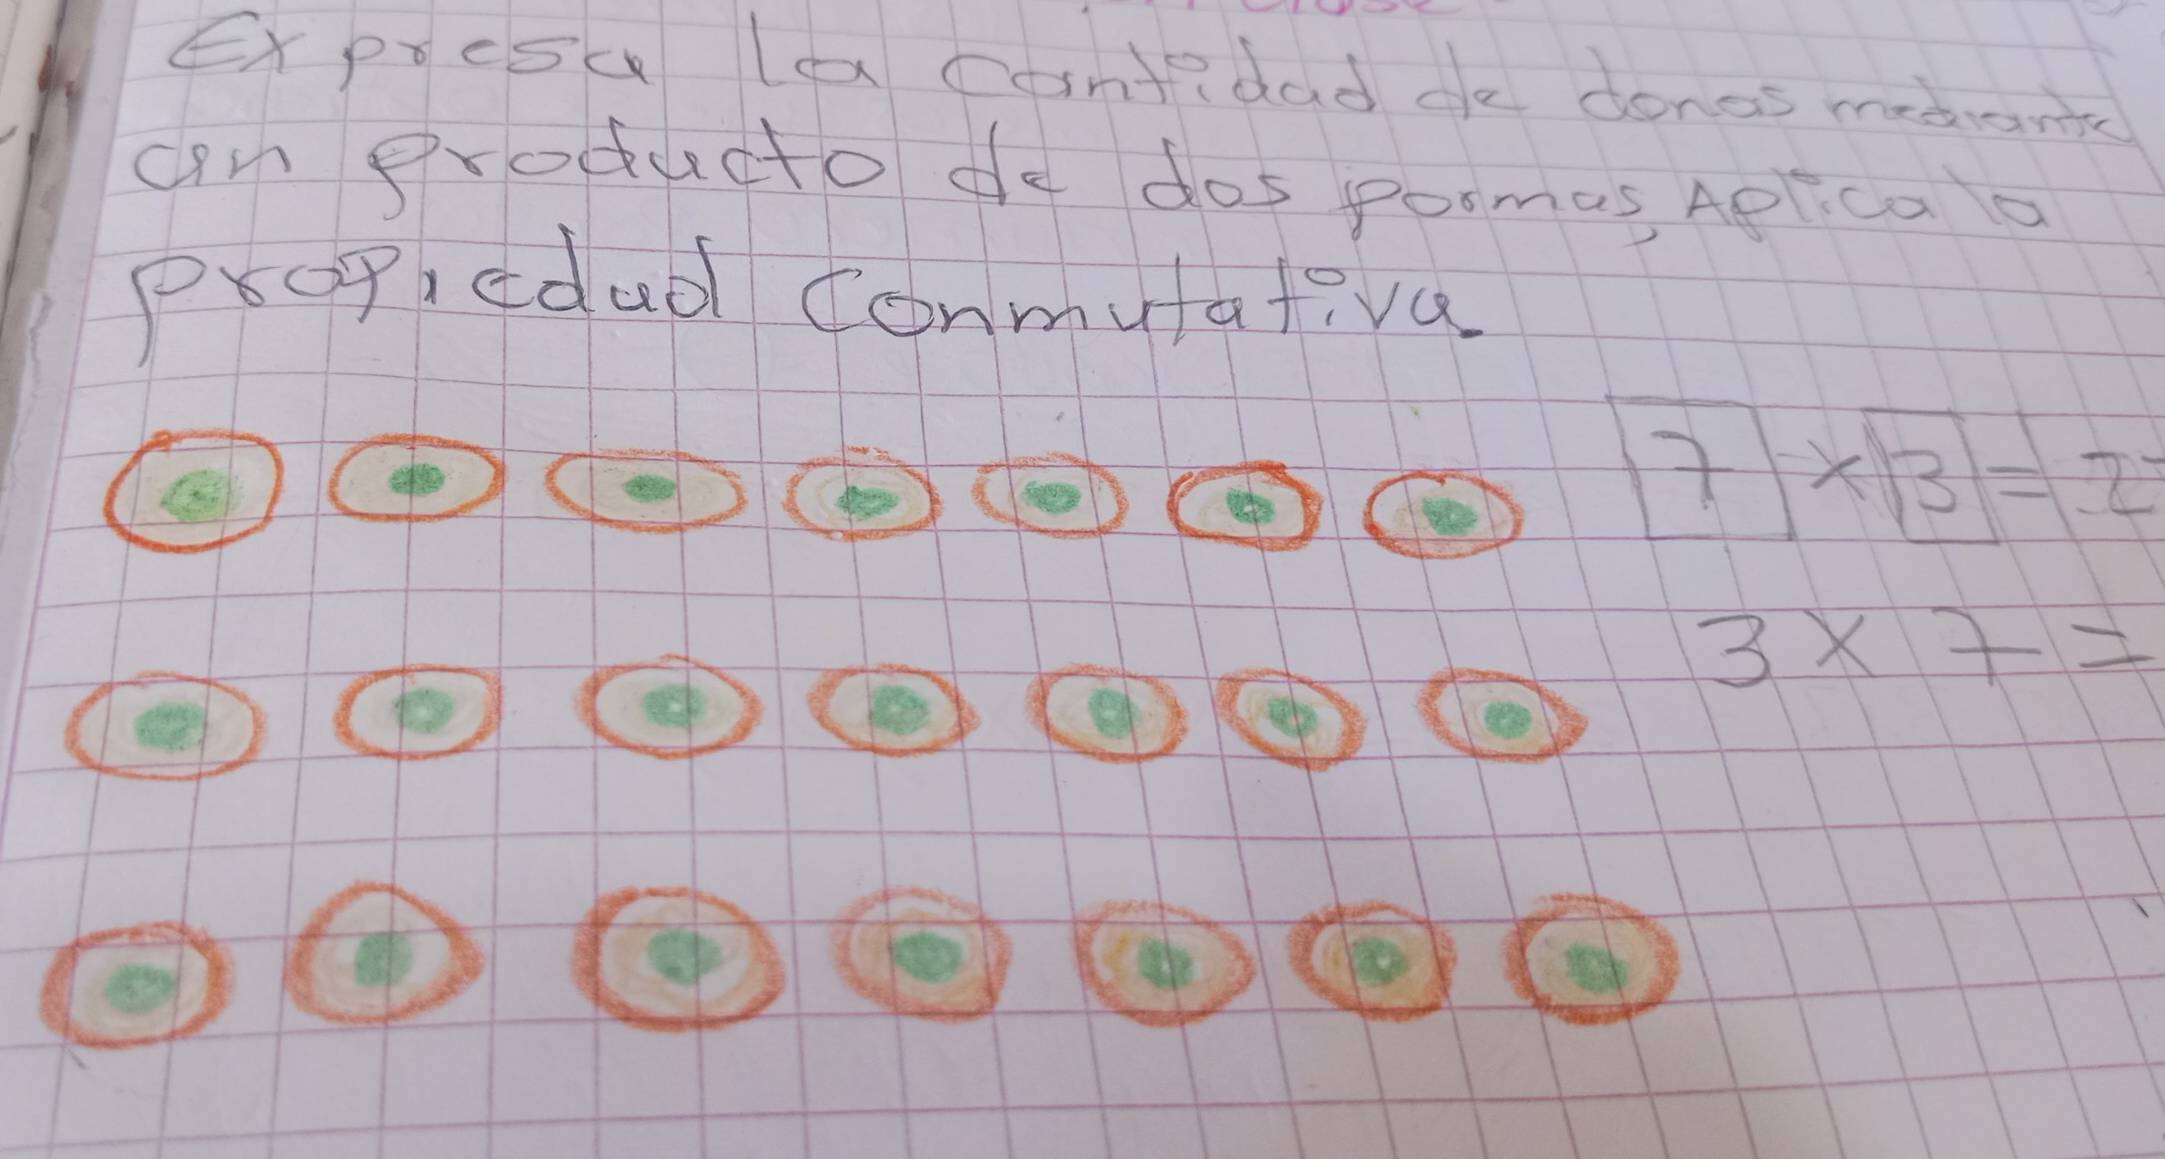 Expresa la cantidad de donas mediante
un producto de dos formas, Aplica la
propiedad conmutativa
7 × 3 = 2
3 × 7 =